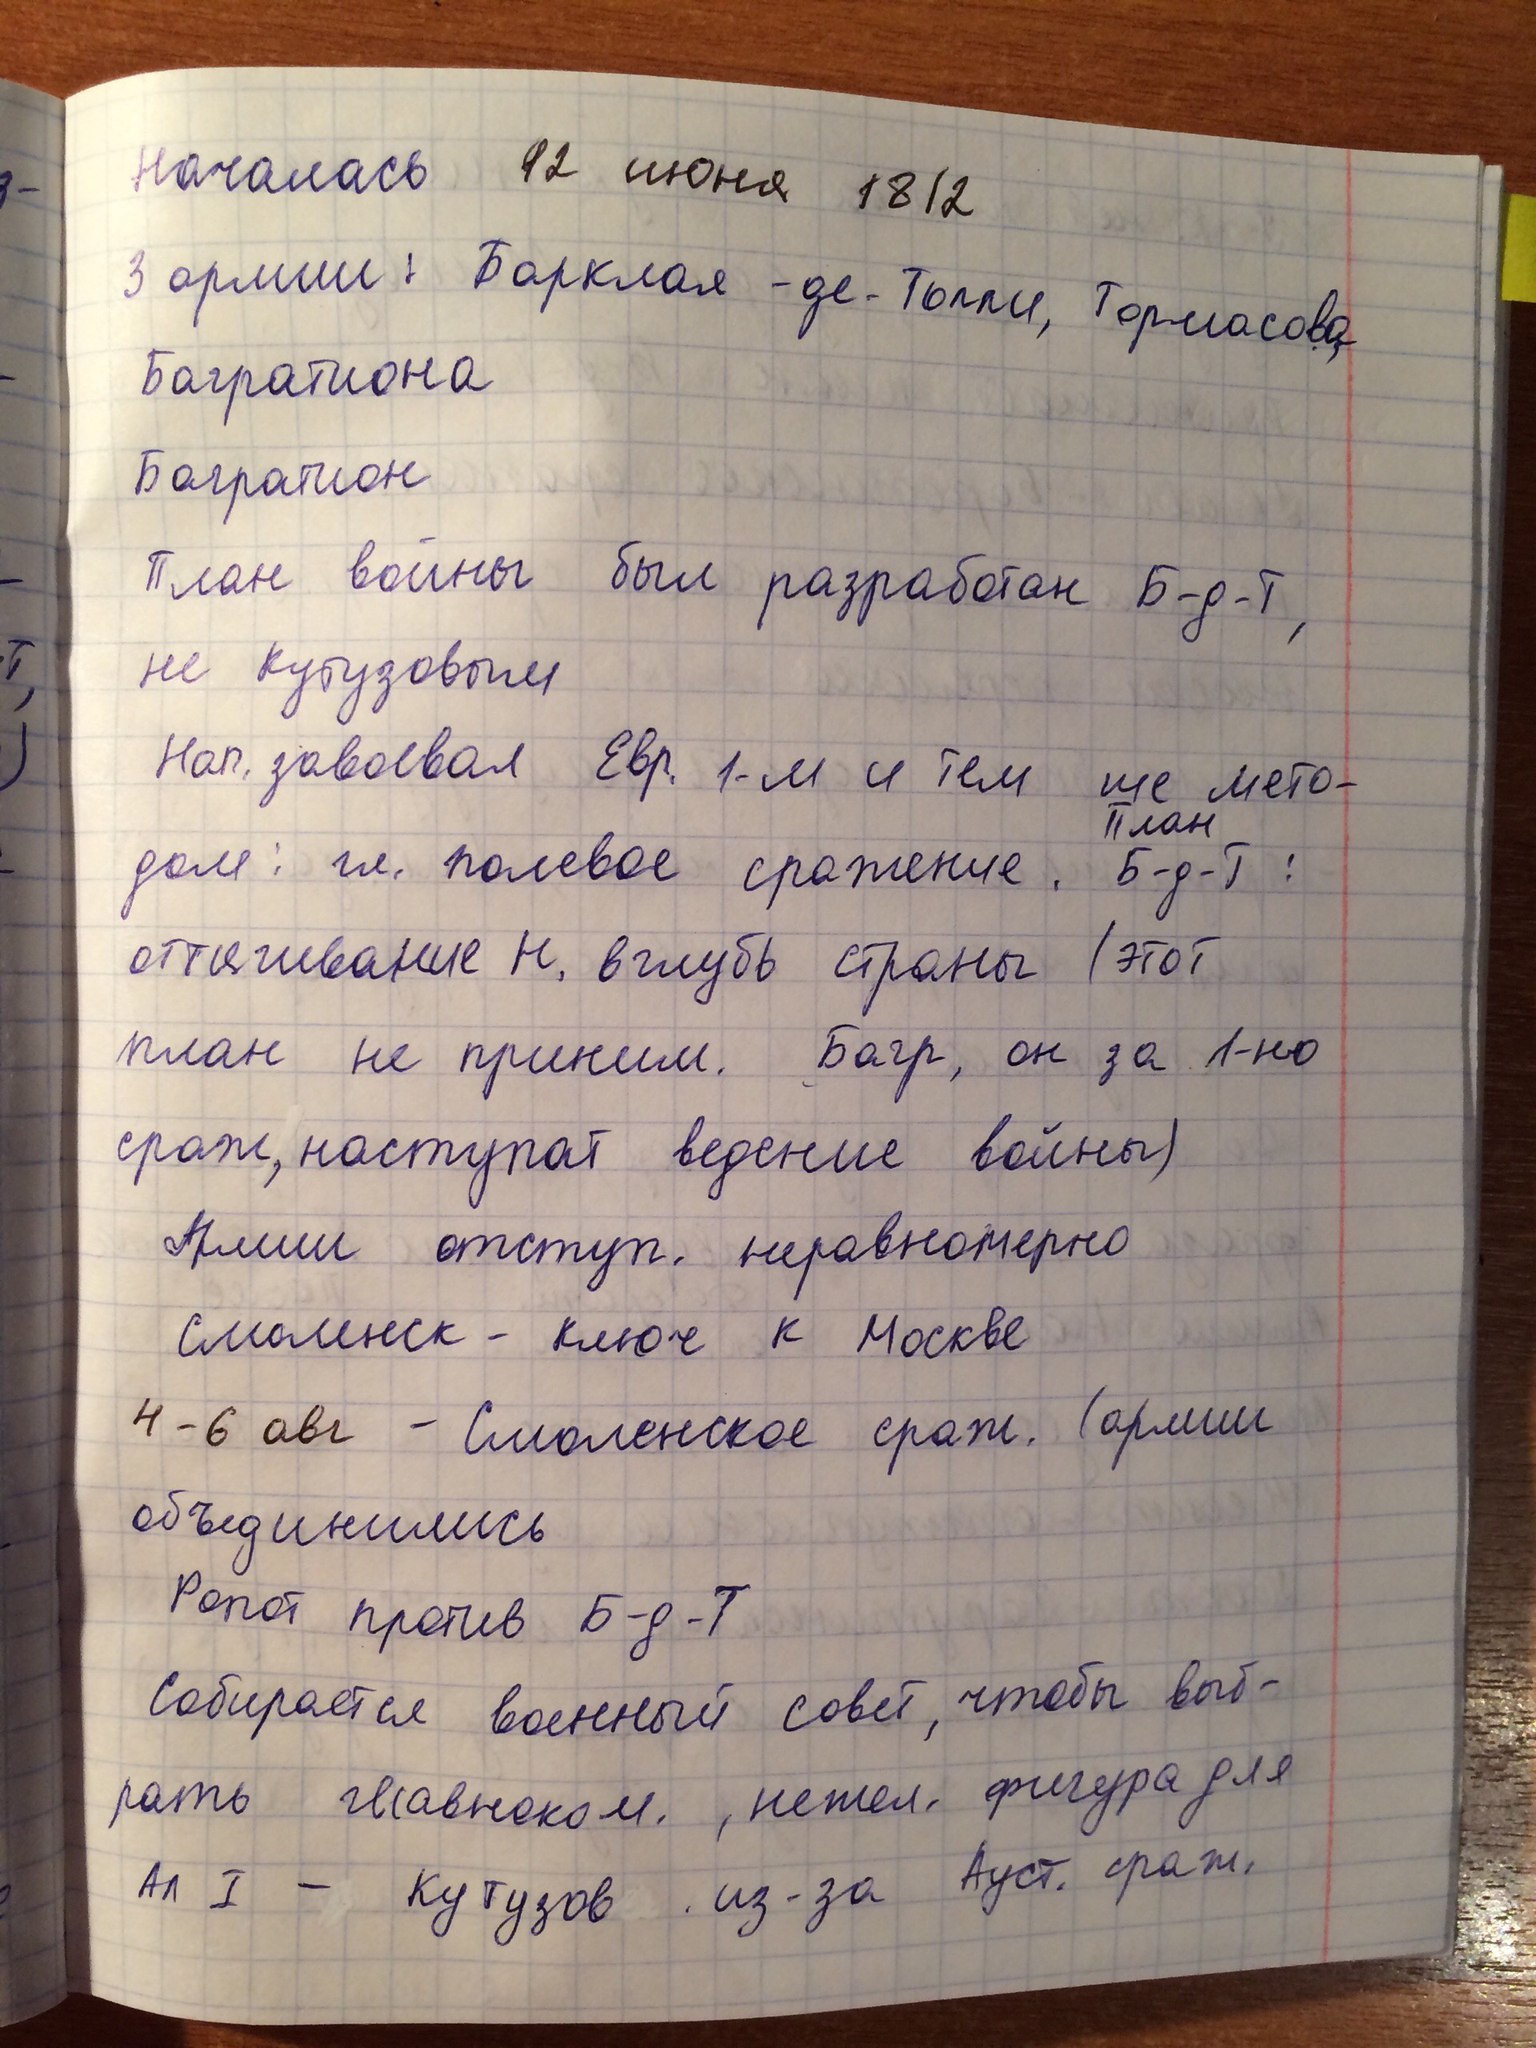 Началась 12 июня 1812
3 армии: Барклая-де-Толли, Тормасова,
Багратиона
Багратион
План войны был разработан Б-д-Т,
не Кутузовым
Нап. завоевал Евр. 1-м и тем же мето-
план
дом: гл. полевое сражение. Б-д-Т:
оттягивание Н. вглубь страны (этот
план не приним. Багр, он за 1-но
сраж, наступат ведение войны)
Армии отступ. неравномерно
Смоленск - ключ к Москве
4-6 авг - Смоленское сраж. (армии
объединились
Ропот против Б-д-Т
Собирается военный совет, чтобы выб-
рать главноком., нежел. фигура для
Ал I - Кутузов из-за Ауст. сраж.